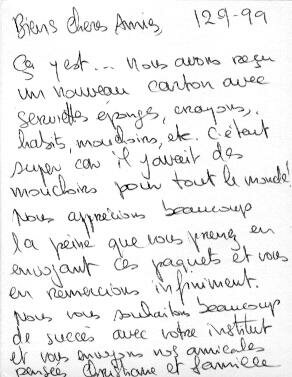 Biens Chères Amies, 129-99
Ça y est... Nous avons reçu
un nouveau carton avec
serviettes éponges, crayons,
habits, mouchoirs, etc. C'était
super car il y avait des
mouchoirs pour tout le monde!
Nous apprécions beaucoup
la peine que vous prenez en
envoyant ces paquets et vous
en remercions infiniment.
Nous vous souhaitons beaucoup
de succès avec votre institut
et vous envoyons nos amicales
pensées Christiane et famille